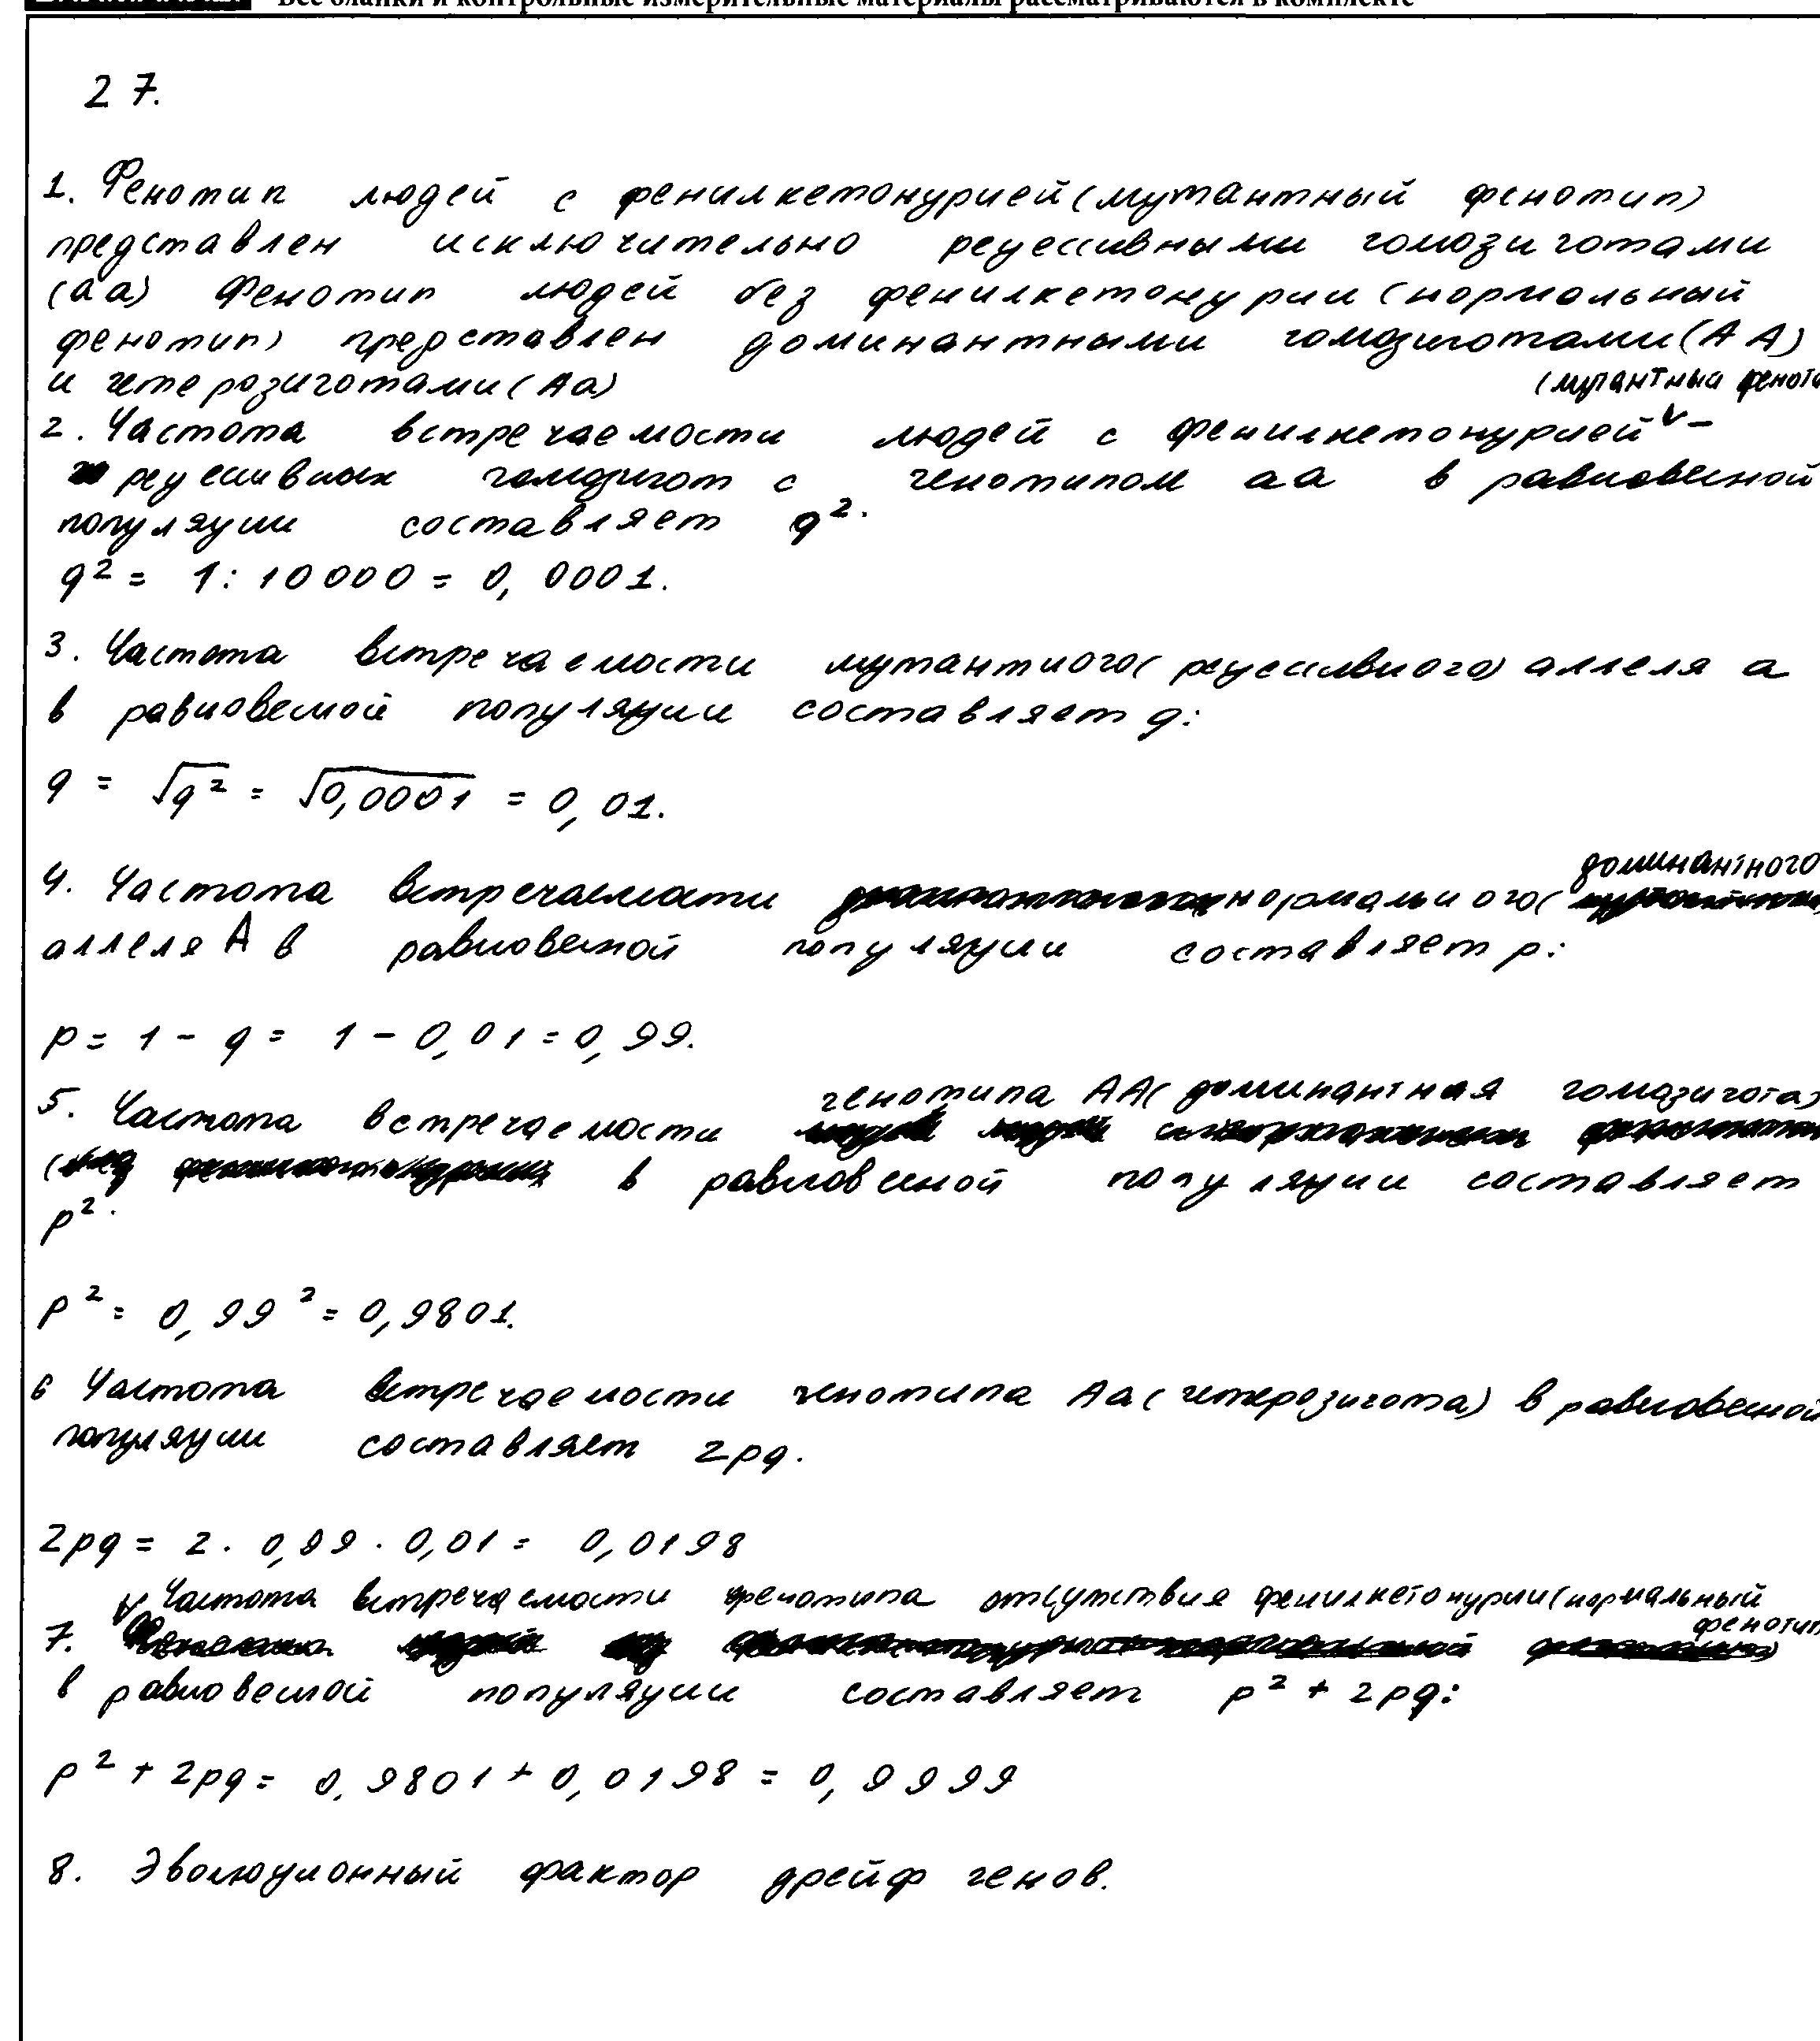 Все бланки и контрольные измерительные материалы рассматриваются в комплекте
27.
1. Фенотип людей с фенилкетонурией (мутантный фенотип)
представлен исключительно рецессивными гомозиготами
(аа) Фенотип людей без фенилкетонурии (нормальный
фенотип) представлен доминантными гомозиготами (АА)
и гетерозиготами (Аа)
(мутантный фенотип
2. Частота встречаемости людей с фенилкетонурией -
рецессивных гомозигот с генотипом аа в равновесной
популяции составляет q².
q² = 1 : 10000 = 0,0001.
3. Частота встречаемости мутантного (рецессивного) аллеля а
в равновесной популяции составляет q:
q = √q² = √0,0001 = 0,01.
доминантного
4. Частота встречаемости нормального (
аллеля А в равновесной популяции составляет p:
p = 1 - q = 1 - 0,01 = 0,99.
генотипа АА (доминантная гомозигота)
5. Частота встречаемости
( в равновесной популяции составляет
p².
p² = 0,99² = 0,9801.
6 Частота встречаемости генотипа Аа (гетерозигота) в равновесной
популяции составляет 2pq.
2pq = 2 · 0,99 · 0,01 = 0,0198
Частота встречаемости фенотипа отсутствия фенилкетонурии (нормальный
фенотип
7.
в равновесной популяции составляет p² + 2pq:
p² + 2pq = 0,9801 + 0,0198 = 0,9999
8. Эволюционный фактор дрейф генов.